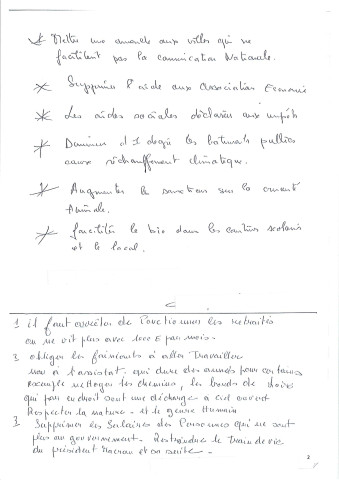 * Mettre une amende aux villes qui ne
facilitent pas la communication Nationale.
* Supprimer l'aide aux Association Economie
* Les aides sociales déclarées aux impôts
* Diminuer d 1 degré les batiments publics
cause réchauffement climatique.
* Augmenter la sanction sur la cruauté
Animale.
* facilités le bio dans les cantines scolaires
et le local.
1 il faut arrêter de Ponctionner les Retraités
on ne vit plus avec 1000 E par mois.
2 obliger les fainéants à aller Travailler
non à l'assistat qui dure des années pour certains
exemple nettoyer les chemins, les bords de
qui par endroit sont une décharge a ciel ouvert
Respecter la nature. et le genre Humain
3 Supprimer les Salaires des Personnes qui ne sont
plus au gouvernement. Restreindre le Train de vie
du président Macron et sa suite.
2